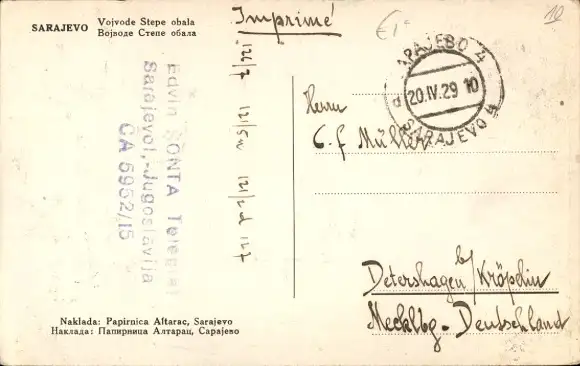 SARAJEVO Vojvode Stepe obala
Војводе Степе обала
Imprimé
€1-
10
САРАЈЕВО 4
d 20.IV.29 10
SARAJEVO 4
Edvin SONTA Telegraf
Sarajevo I,-Jugoslavija
CA 5952/15
126/7 121/5n 121/2d 127
Herrn
C. f Müller
Detershagen b/Kröpelin
Mecklbg - Deutschland
Naklada: Papirnica Altarac, Sarajevo
Наклада: Папирница Алтарац, Сарајево